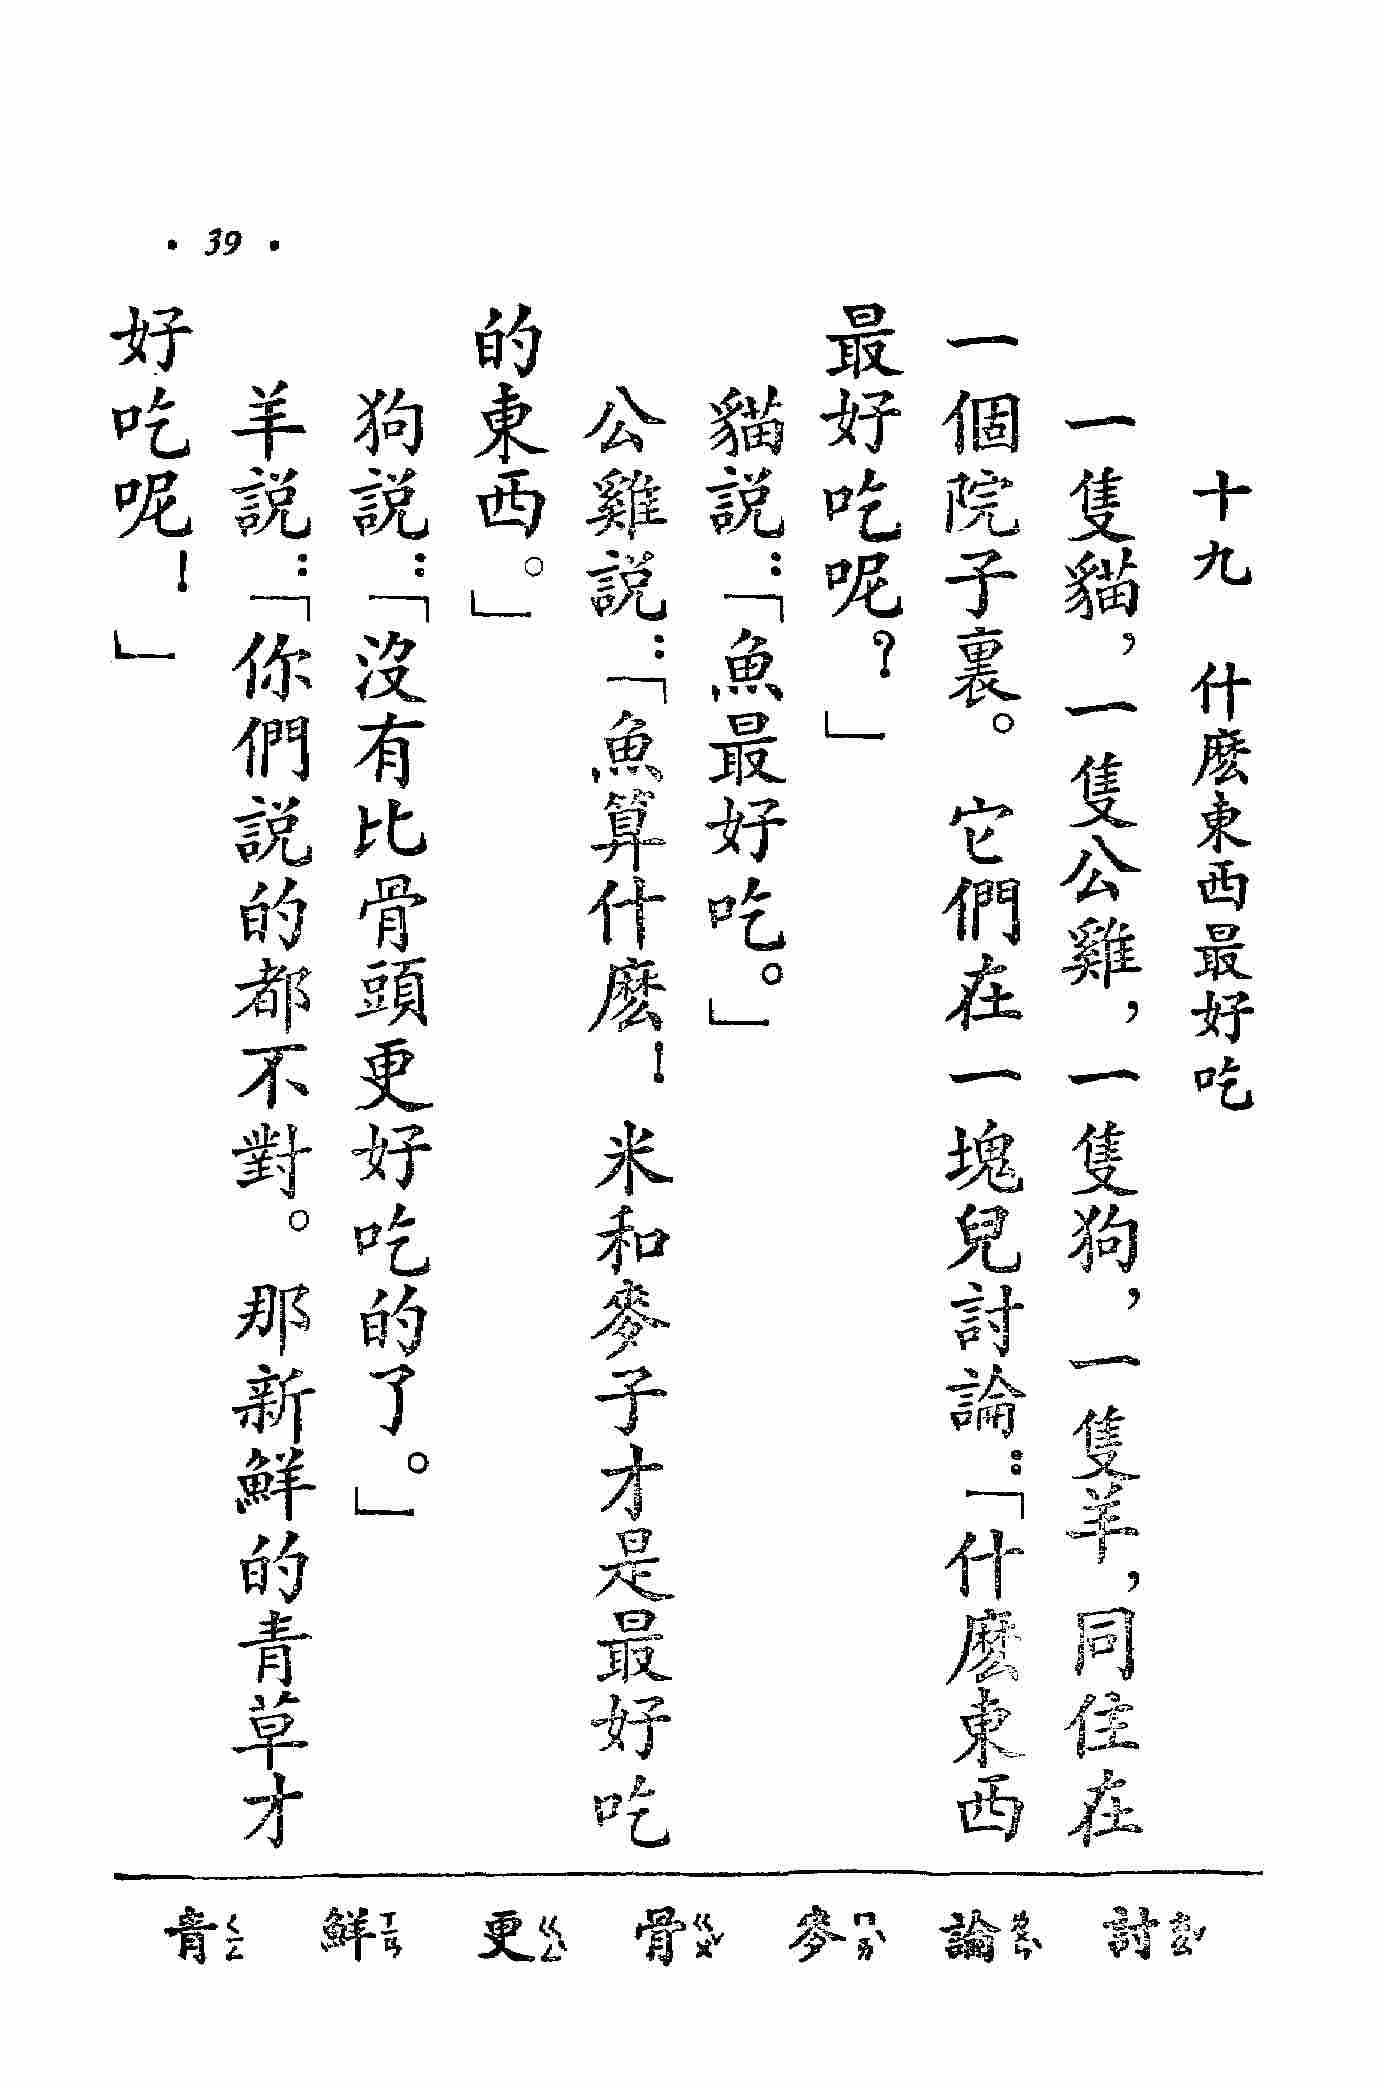 十九　什麽東西最好吃
一隻貓，一隻公雞，一隻狗，一隻羊，同住在
一個院子裏。它們在一塊兒討論：「什麽東西
最好吃呢？」
貓說：「魚最好吃。」
公雞說：「魚算什麽！米和麥子才是最好吃
的東西。」
狗說：「沒有比骨頭更好吃的了。」
羊說：「你們說的都不對。那新鮮的青草才
好吃呢！」
討ㄊㄠˇ 論ㄌㄨㄣˋ 麥ㄇㄞˋ 骨ㄍㄨˇ 更ㄍㄥˋ 鮮ㄒㄧㄢ 青ㄑㄧㄥ
· 39 ·